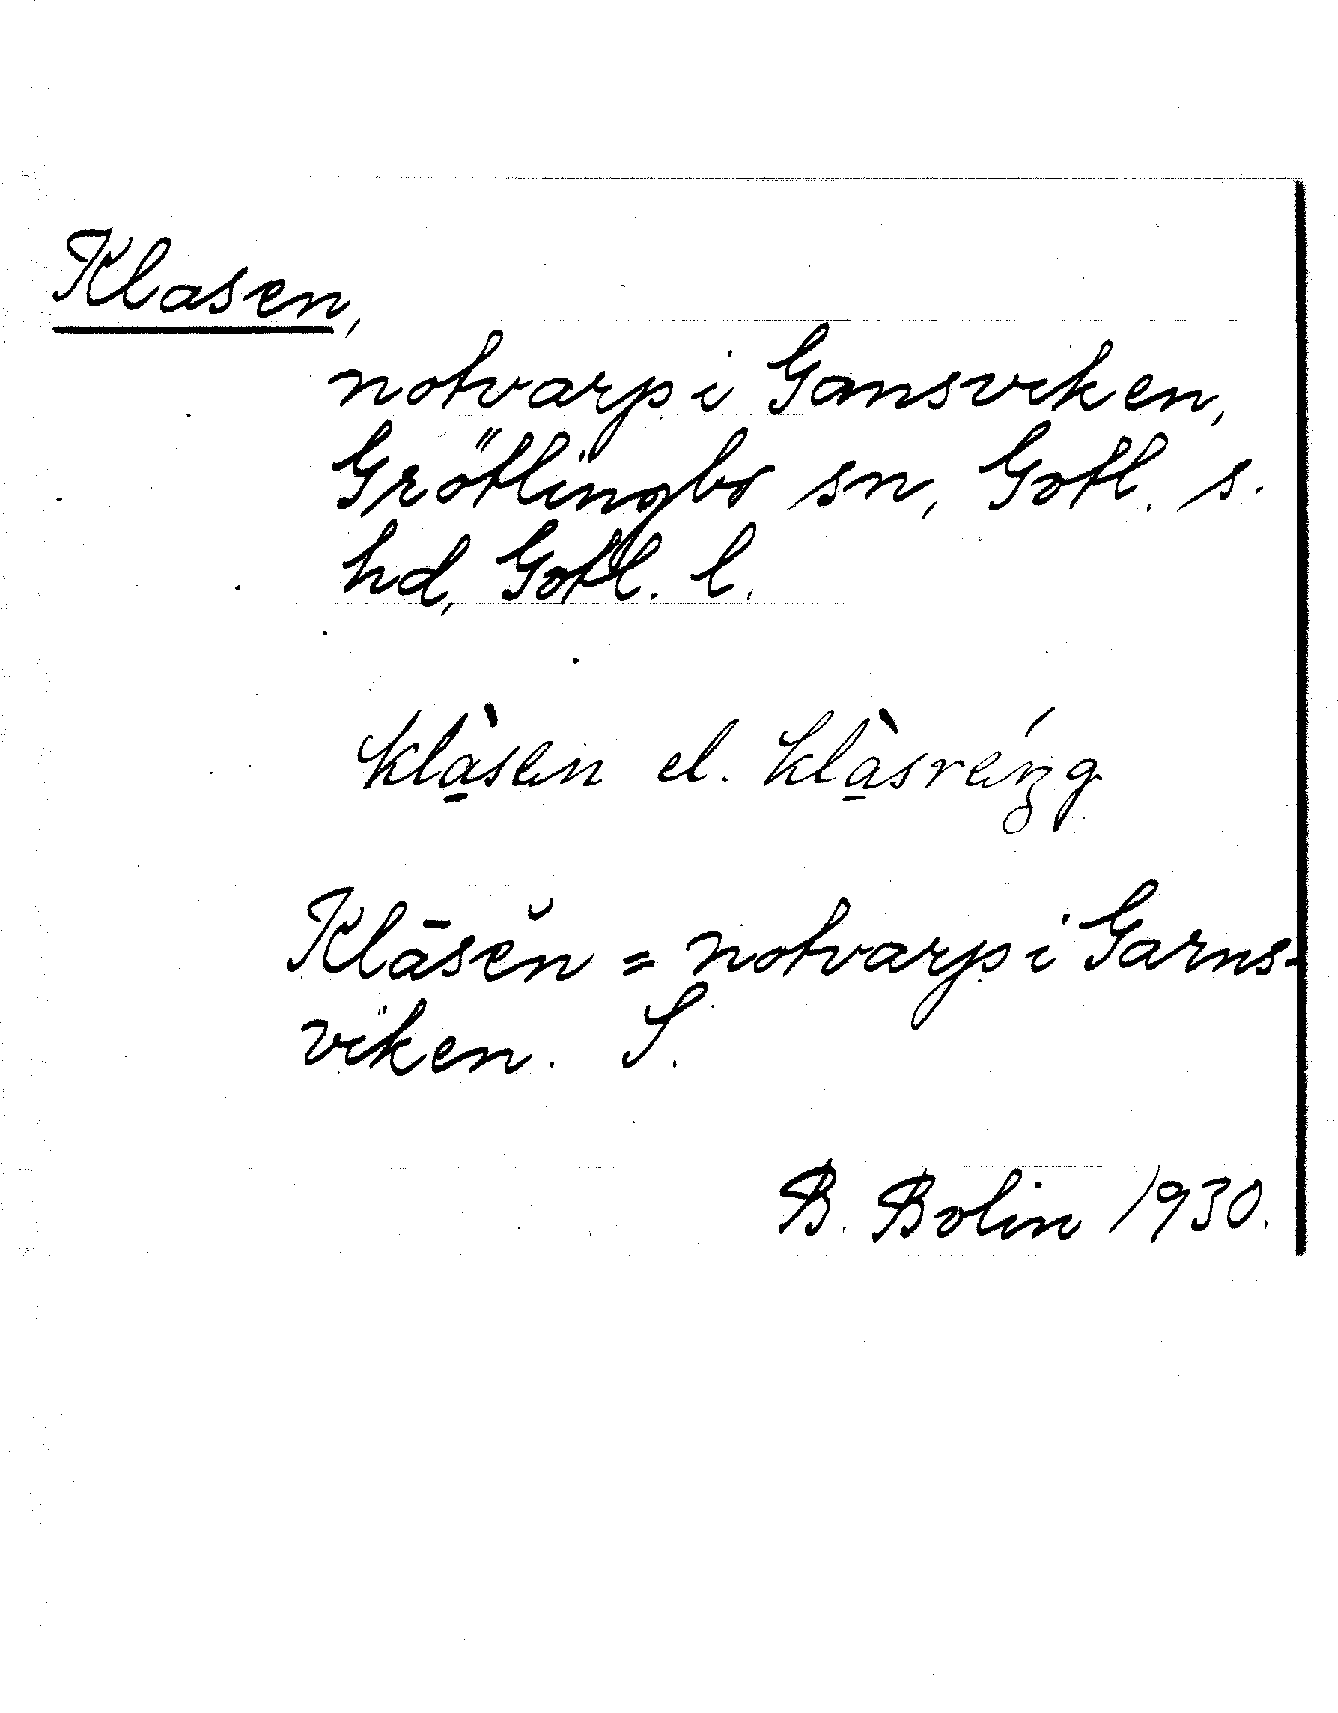 Klasen,
notvarp i Gansviken,
Grötlingbo sn, Gotl. s.
hd, Gotl. l.
klà̱sen el. klà̱sréŋg
Klāsĕn = notvarp i Garns-
viken. S.
B. Bolin 1930.